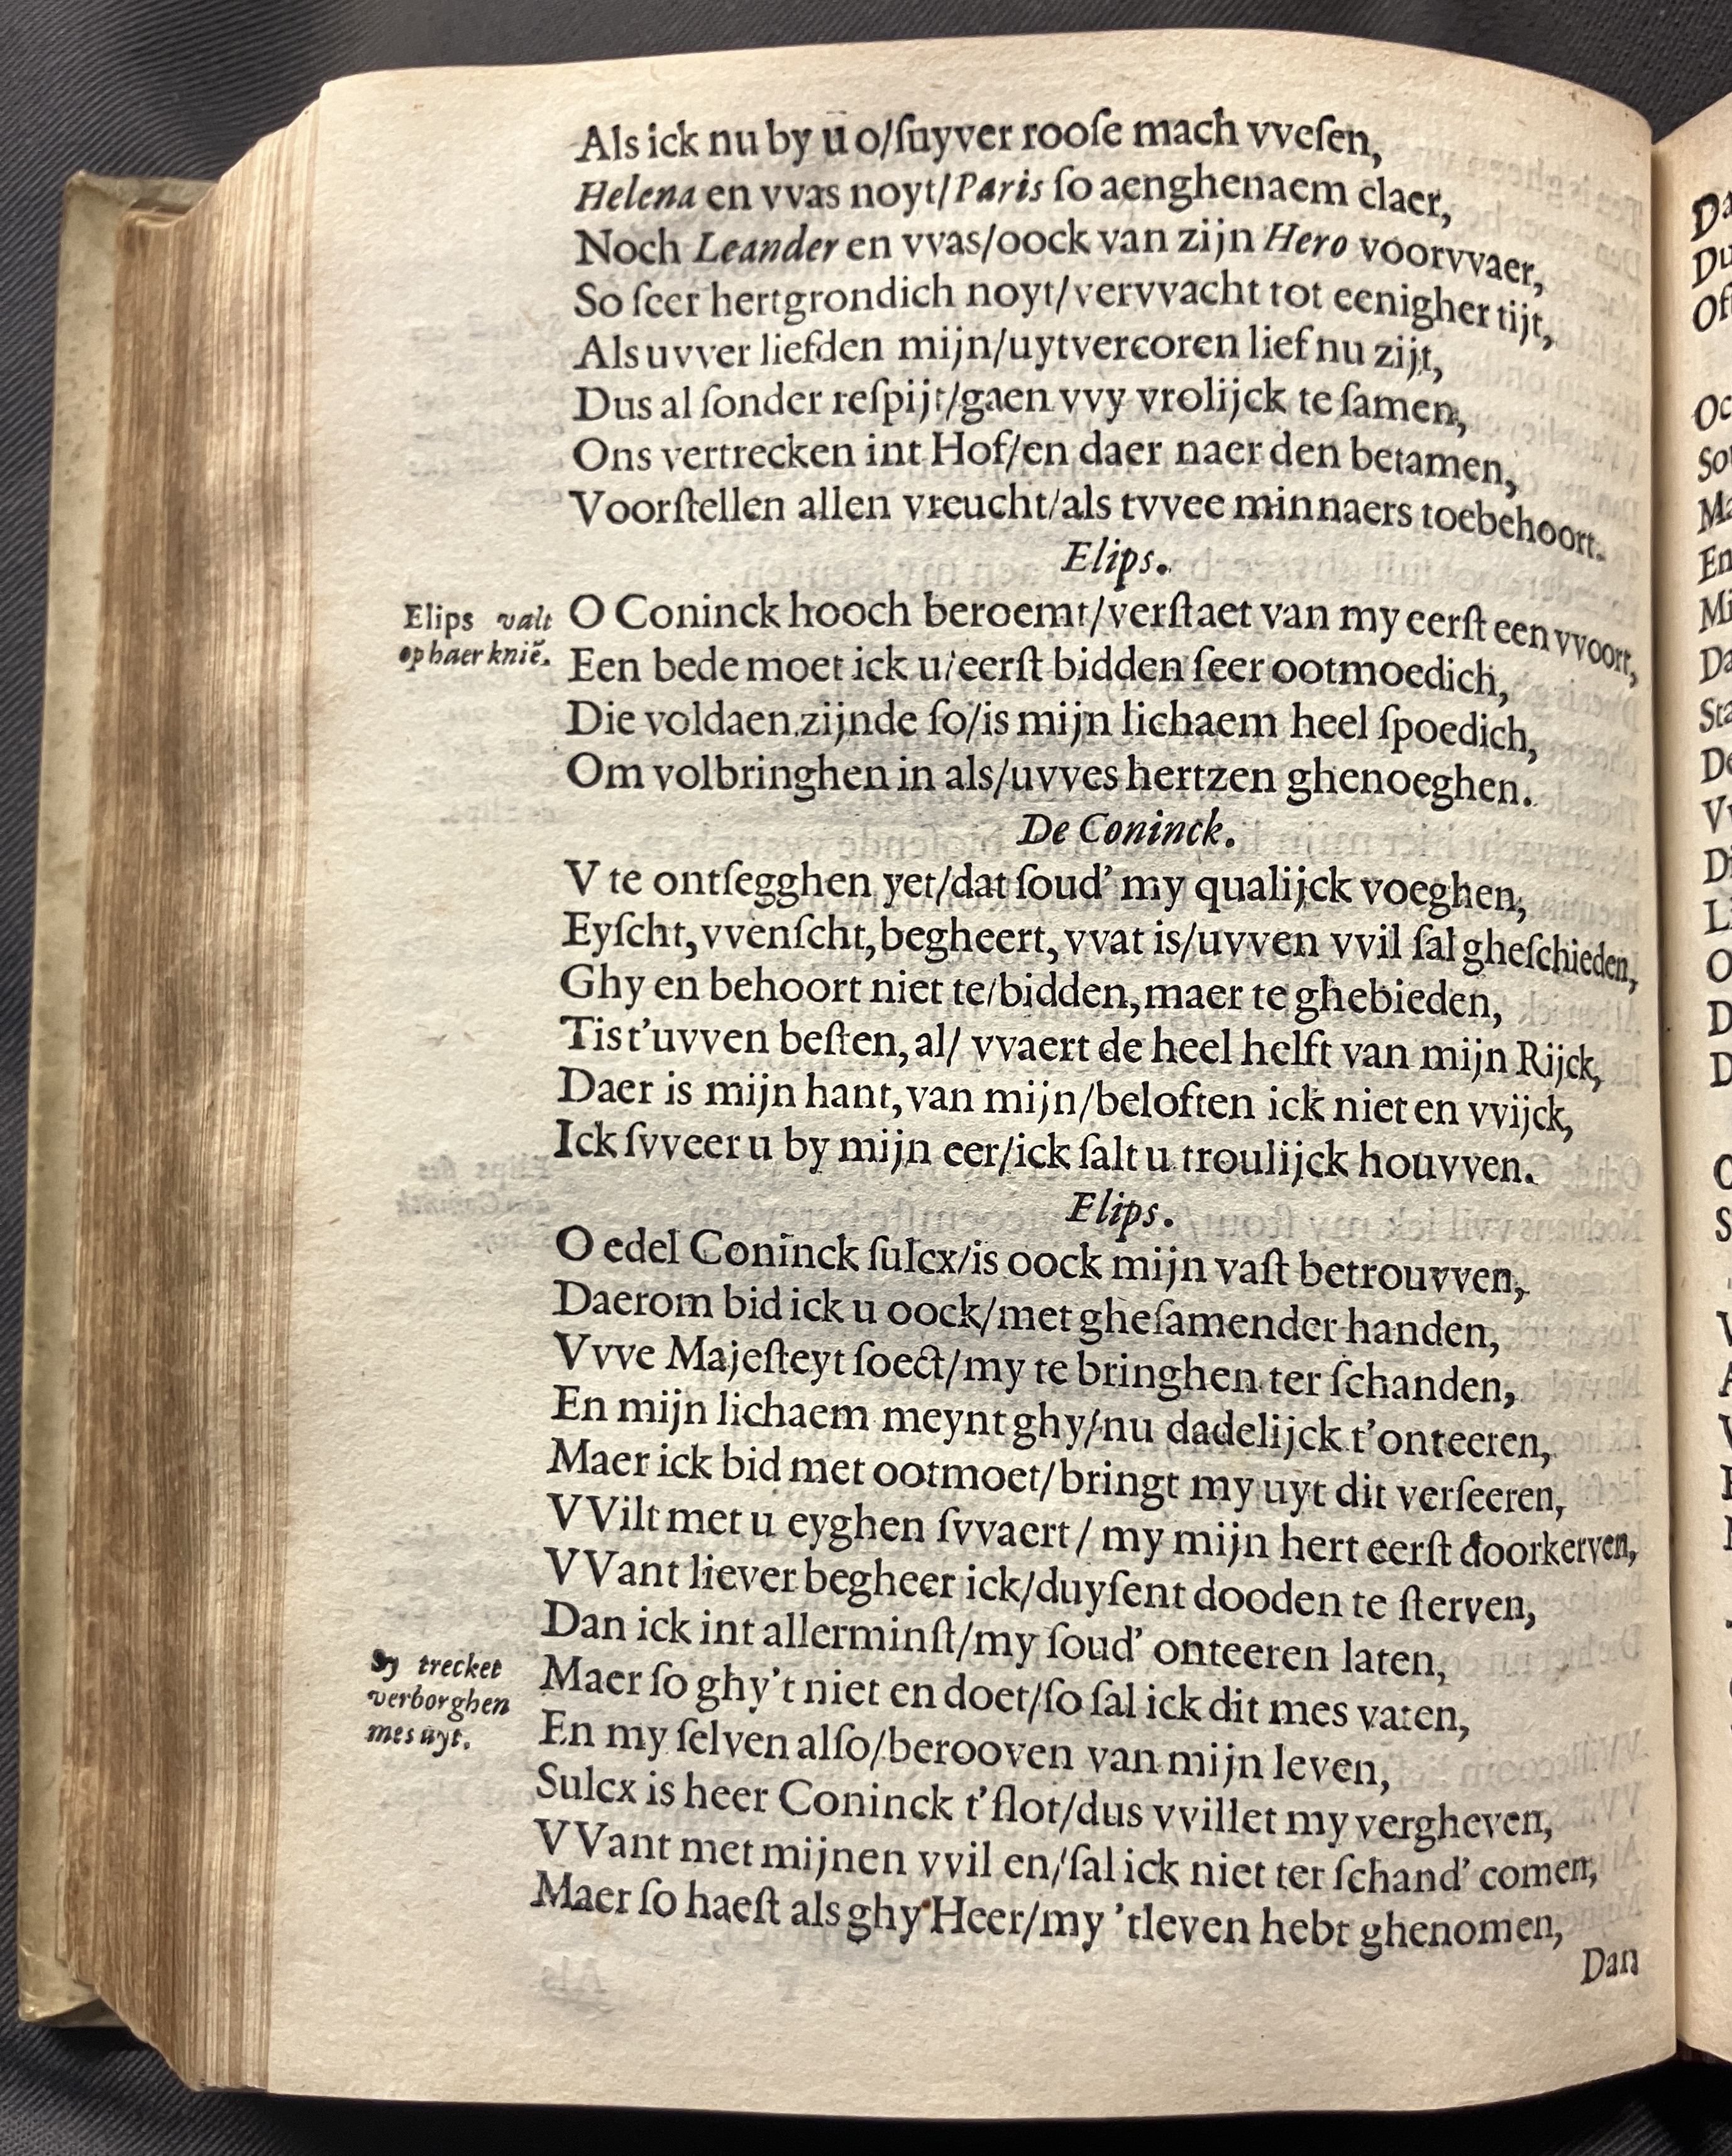 Als ick nu by u o/ſuyver rooſe mach vveſen,
Helena en vvas noyt/Paris ſo aenghenaem claer,
Noch Leander en vvas/oock van zijn Hero voorvvaer,
So ſeer hertgrondich noyt/vervvacht tot eenigher tijt,
Als uvver liefden mijn/uytvercoren lief nu zijt,
Dus al ſonder reſpijt/gaen vvy vrolijck te ſamen,
Ons vertrecken int Hof/en daer naer den betamen,
Voorſtellen allen vreucht/als tvvee minnaers toebehoort.
Elips.
Elips valt
op haer knië.
O Coninck hooch beroemt/verſtaet van my eerſt een vvoort,
Een bede moet ick u/eerſt bidden ſeer ootmoedich,
Die voldaen zijnde ſo/is mijn lichaem heel ſpoedich,
Om volbringhen in als/uvves hertzen ghenoeghen.
De Coninck.
V te ontſegghen yet/dat ſoud' my qualijck voeghen,
Eyſcht, vvenſcht, begheert, vvat is/uvven vvil ſal gheſchieden,
Ghy en behoort niet te/bidden, maer te ghebieden,
Tis t'uvven beſten, al/ vvaert de heel helft van mijn Rijck,
Daer is mijn hant, van mijn/beloften ick niet en vvijck,
Ick ſvveer u by mijn eer/ick ſalt u troulijck houvven.
Elips.
O edel Coninck ſulcx/is oock mijn vaſt betrouvven,
Daerom bid ick u oock/met gheſamender handen,
Vvve Majeſteyt ſoect/my te bringhen ter ſchanden,
En mijn lichaem meynt ghy/nu dadelijck t'onteeren,
Maer ick bid met ootmoet/bringt my uyt dit verſeeren,
VVilt met u eyghen ſvvaert/ my mijn hert eerſt doorkerven,
VVant liever begheer ick/duyſent dooden te ſterven,
Dan ick int allerminſt/my ſoud' onteeren laten,
Sy trecket
verborghen
mes uyt.
Maer ſo ghy't niet en doet/ſo ſal ick dit mes vaten,
En my ſelven alſo/berooven van mijn leven,
Sulcx is heer Coninck t'ſlot/dus vvillet my vergheven,
VVant met mijnen vvil en/ſal ick niet ter ſchand' comen,
Maer ſo haeſt als ghy Heer/my 'tleven hebt ghenomen,
Dan